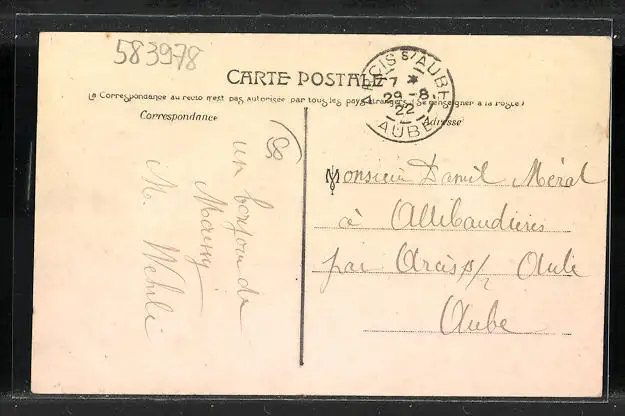 583978
CARTE POSTALE
La Correspondance au recto n'est pas autorisée par tous les pays étrangers (Se renseigner à la Poste)
ARCIS S/ AUBE
7 *
29-8
22
AUBE
Correspondance
Adresse
un bonjour de
M. Wehrlé
Monsieur Daniel Méral
à Allibaudières
par Arcis s/ Aube
Aube